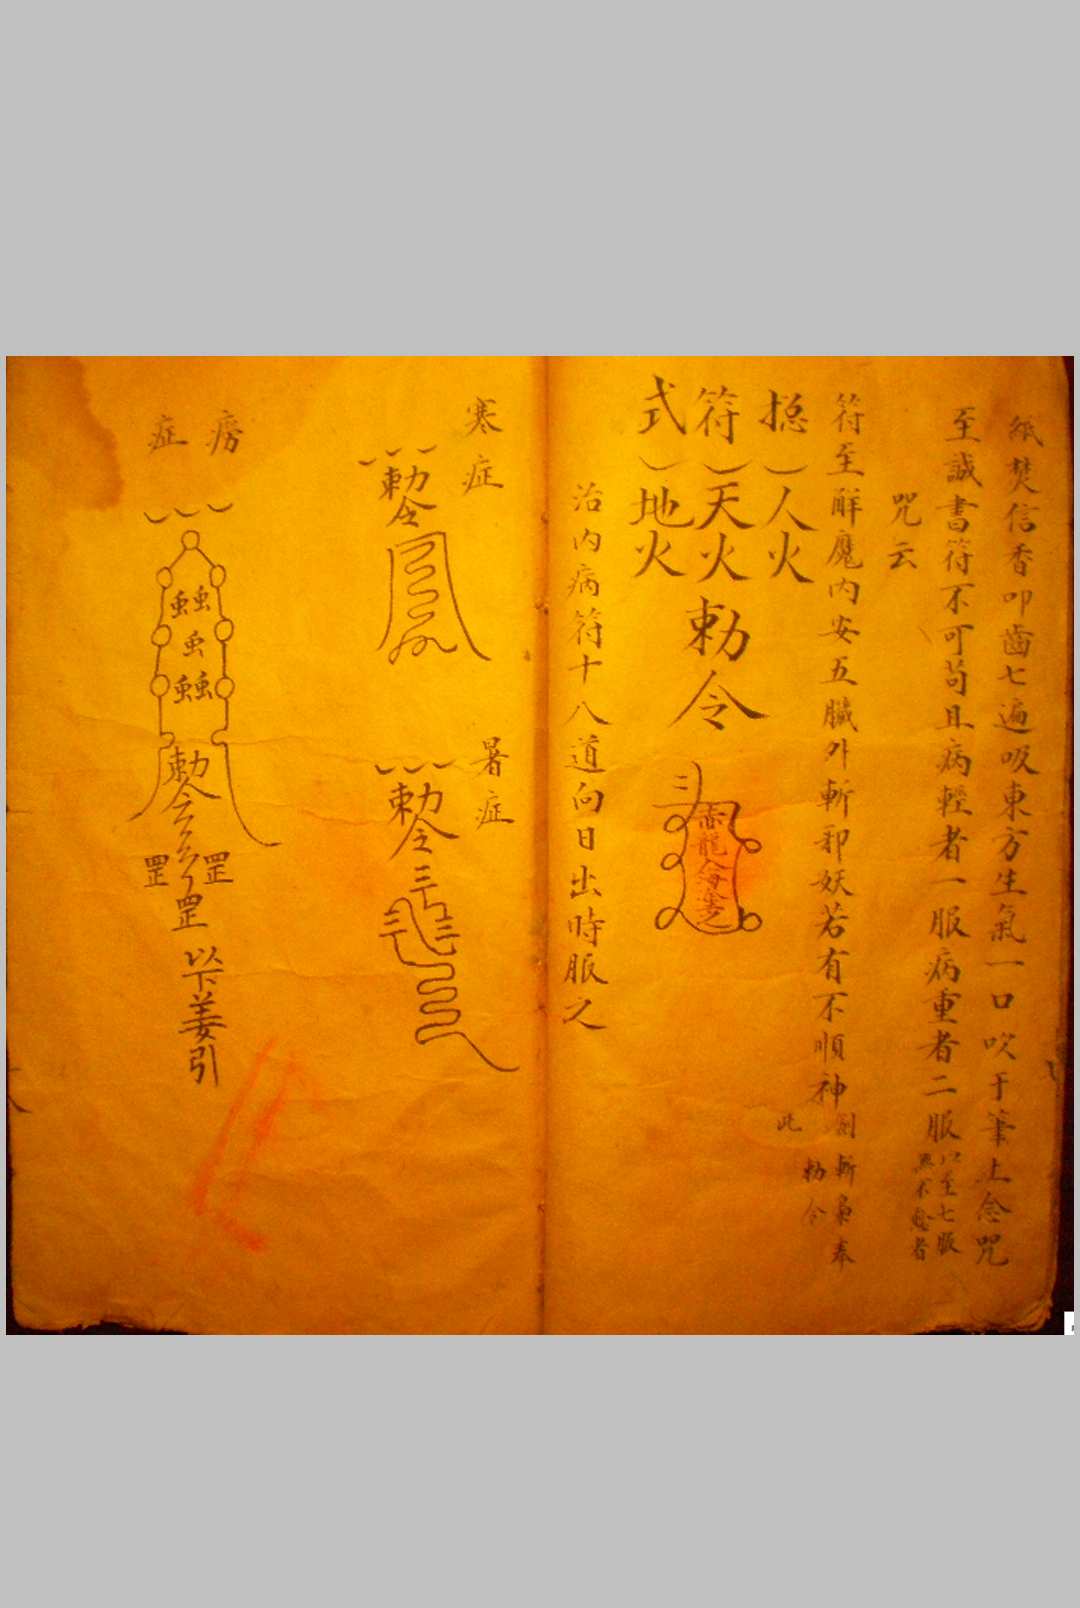 紙焚信香叩齒七遍吸東方生氣一口吹于筆上念咒
至誠書符不可苟且病輕者一服病重者二服以至七服無不愈者
咒云
符至解魔內安五臟外斬邪妖若有不順神劍斬梟奉此勅令
捴符式
人火
天火
地火
勅令
二
赤龍
治内病符十八道向日出時服之
寒症
勅令
暑症
勅令
三
三
三
痨症
䖵
虫
䖵
勅令
罡
罡
罡
以下姜引